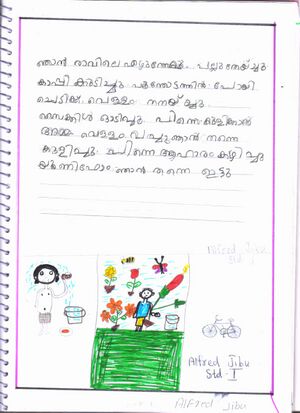 ഞാൻ രാവിലെ എഴുന്നേറ്റു. പല്ലുതേയ്ച്ചു
കാപ്പി കുടിച്ചു. പൂന്തോട്ടത്തിൽ പോയി
ചെടിക്ക് വെള്ളം നനയ്ച്ചു.
സൈക്കിൾ ഓടിച്ചു. പിന്നെ കുളിക്കാൻ
അമ്മ വെള്ളം വച്ചു ഞാൻ തന്നെ
കുളിച്ചു. പിന്നെ ആഹാരം കഴിച്ചു
യൂണിഫോം ഞാൻ തന്നെ ഇട്ടു
Alfred Jibu
Std I
Alfred Jibu
Std-I
Alfred Jibu